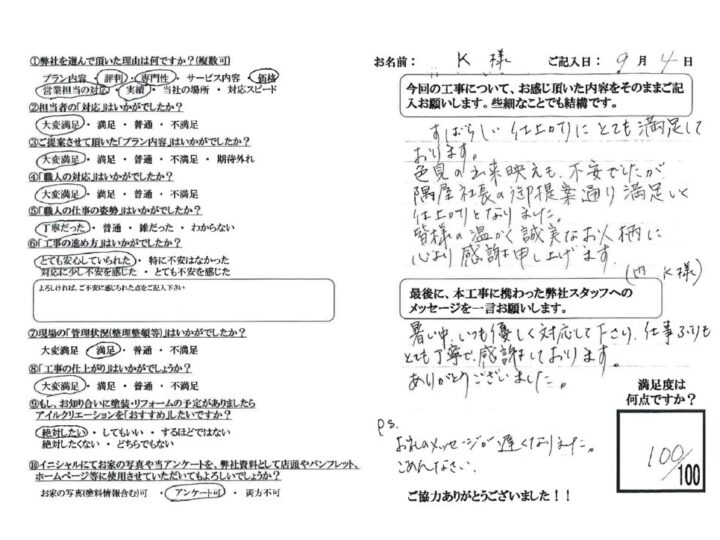 ①弊社を選んで頂いた理由は何ですか?(複数可)
プラン内容 ・ 評判 ・ 専門性 ・ サービス内容 ・ 価格
営業担当の対応 ・ 実績 ・ 当社の場所 ・ 対応スピード
②担当者の「対応」はいかがでしたか?
大変満足 ・ 満足 ・ 普通 ・ 不満足
③ご提案させて頂いた「プラン内容」はいかがでしたか?
大変満足 ・ 満足 ・ 普通 ・ 不満足 ・ 期待外れ
④「職人の対応」はいかがでしたか?
大変満足 ・ 満足 ・ 普通 ・ 不満足
⑤「職人の仕事の姿勢」はいかがでしたか?
丁寧だった ・ 普通 ・ 雑だった ・ わからない
⑥「工事の進め方」はいかがでしたか?
とても安心していられた ・ 特に不安はなかった
対応に少し不安を感じた ・ とても不安を感じた
よろしければ、ご不安に感じられた点をご記入下さい
⑦現場の「管理状況(整理整頓等)」はいかがでしたか?
大変満足 ・ 満足 ・ 普通 ・ 不満足
⑧「工事の仕上がり」はいかがでしょうか?
大変満足 ・ 満足 ・ 普通 ・ 不満足
⑨もし、お知り合いに塗装・リフォームの予定がありましたら
アイルクリエーションを「おすすめ」したいですか?
絶対したい ・ してもいい ・ するほどではない
絶対したくない ・ どちらでもない
⑩イニシャルにてお家の写真や当アンケートを、弊社資料として店頭やパンフレット、
ホームページ等に使用させていただいてもよろしいでしょうか?
お家の写真(塗料情報含む)可 ・ アンケート可 ・ 両方不可
お名前: K 様 ご記入日: 9 月 4 日
今回の工事について、お感じ頂いた内容をそのままご記
入お願いします。些細なことでも結構です。
すばらしい仕上がりにとても満足して
おります。
色見の出来映えも、不安でしたが
隅屋社長の御提案通り満足いく
仕上がりとなりました。
皆様の温かく誠実なお人柄に
心より感謝申し上げます。
K様)
最後に、本工事に携わった弊社スタッフへの
メッセージを一言お願いします。
暑い中、いつも優しく対応して下さり、仕事ぶりも
とても丁寧で、感謝しております。
ありがとうございました。
満足度は
何点ですか?
100/100
P.S.
お礼のメッセージが遅くなりました。
ごめんなさい。
ご協力ありがとうございました!!